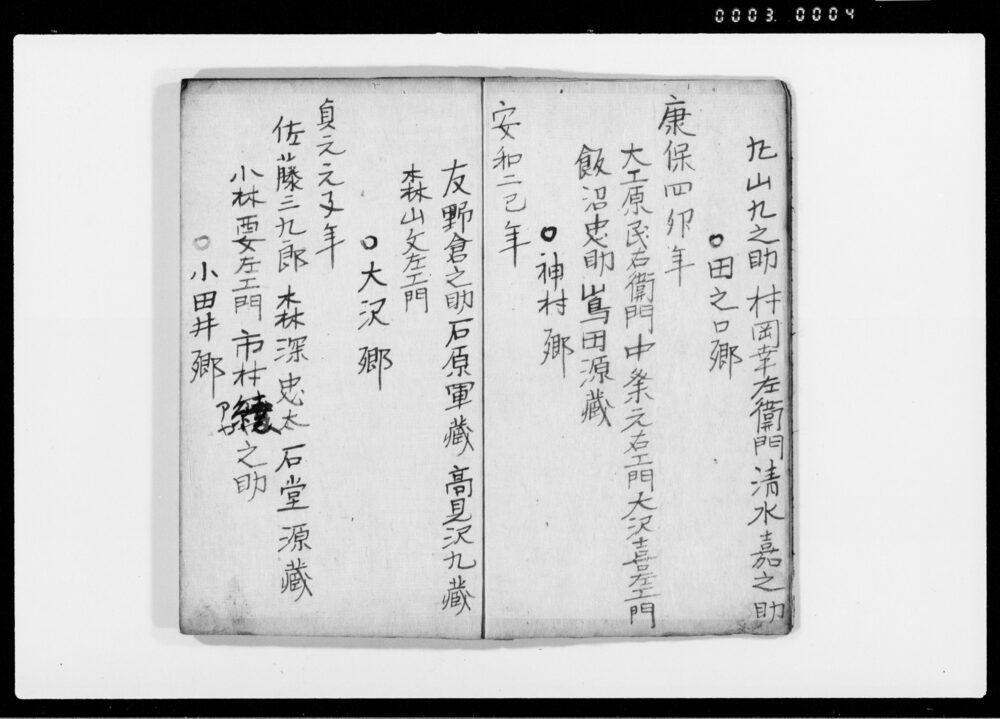 0003.0004
丸山九之助 村岡幸左衞門 清水嘉之助
○田之口郷
康保四卯年
大工原民右衞門 中条元右エ門 大沢喜左エ門
飯沼忠助 嶌田源藏
○神村郷
安和二巳年
友野倉之助 石原軍藏 高見沢九藏
森山文左エ門
○大沢郷
貞元元子年
佐藤三九郎 森深忠太 石堂源藏
小林要左エ門 市村 之助
○小田井郷